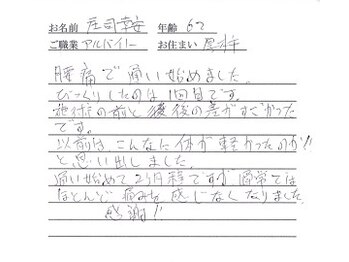 お名前 庄司幸安 年齢 67
ご職業 アルバイト お住まい 厚木
腰痛で通い始めました。
びっくりしたのは1回目です。
施術の前と後の差がすごかった
です。
以前はこんなに体が軽かったのか!!
と思い出しました。
通い始めて2ヶ月程ですが通常では
ほとんど痛みも感じなくなりました
感謝!!